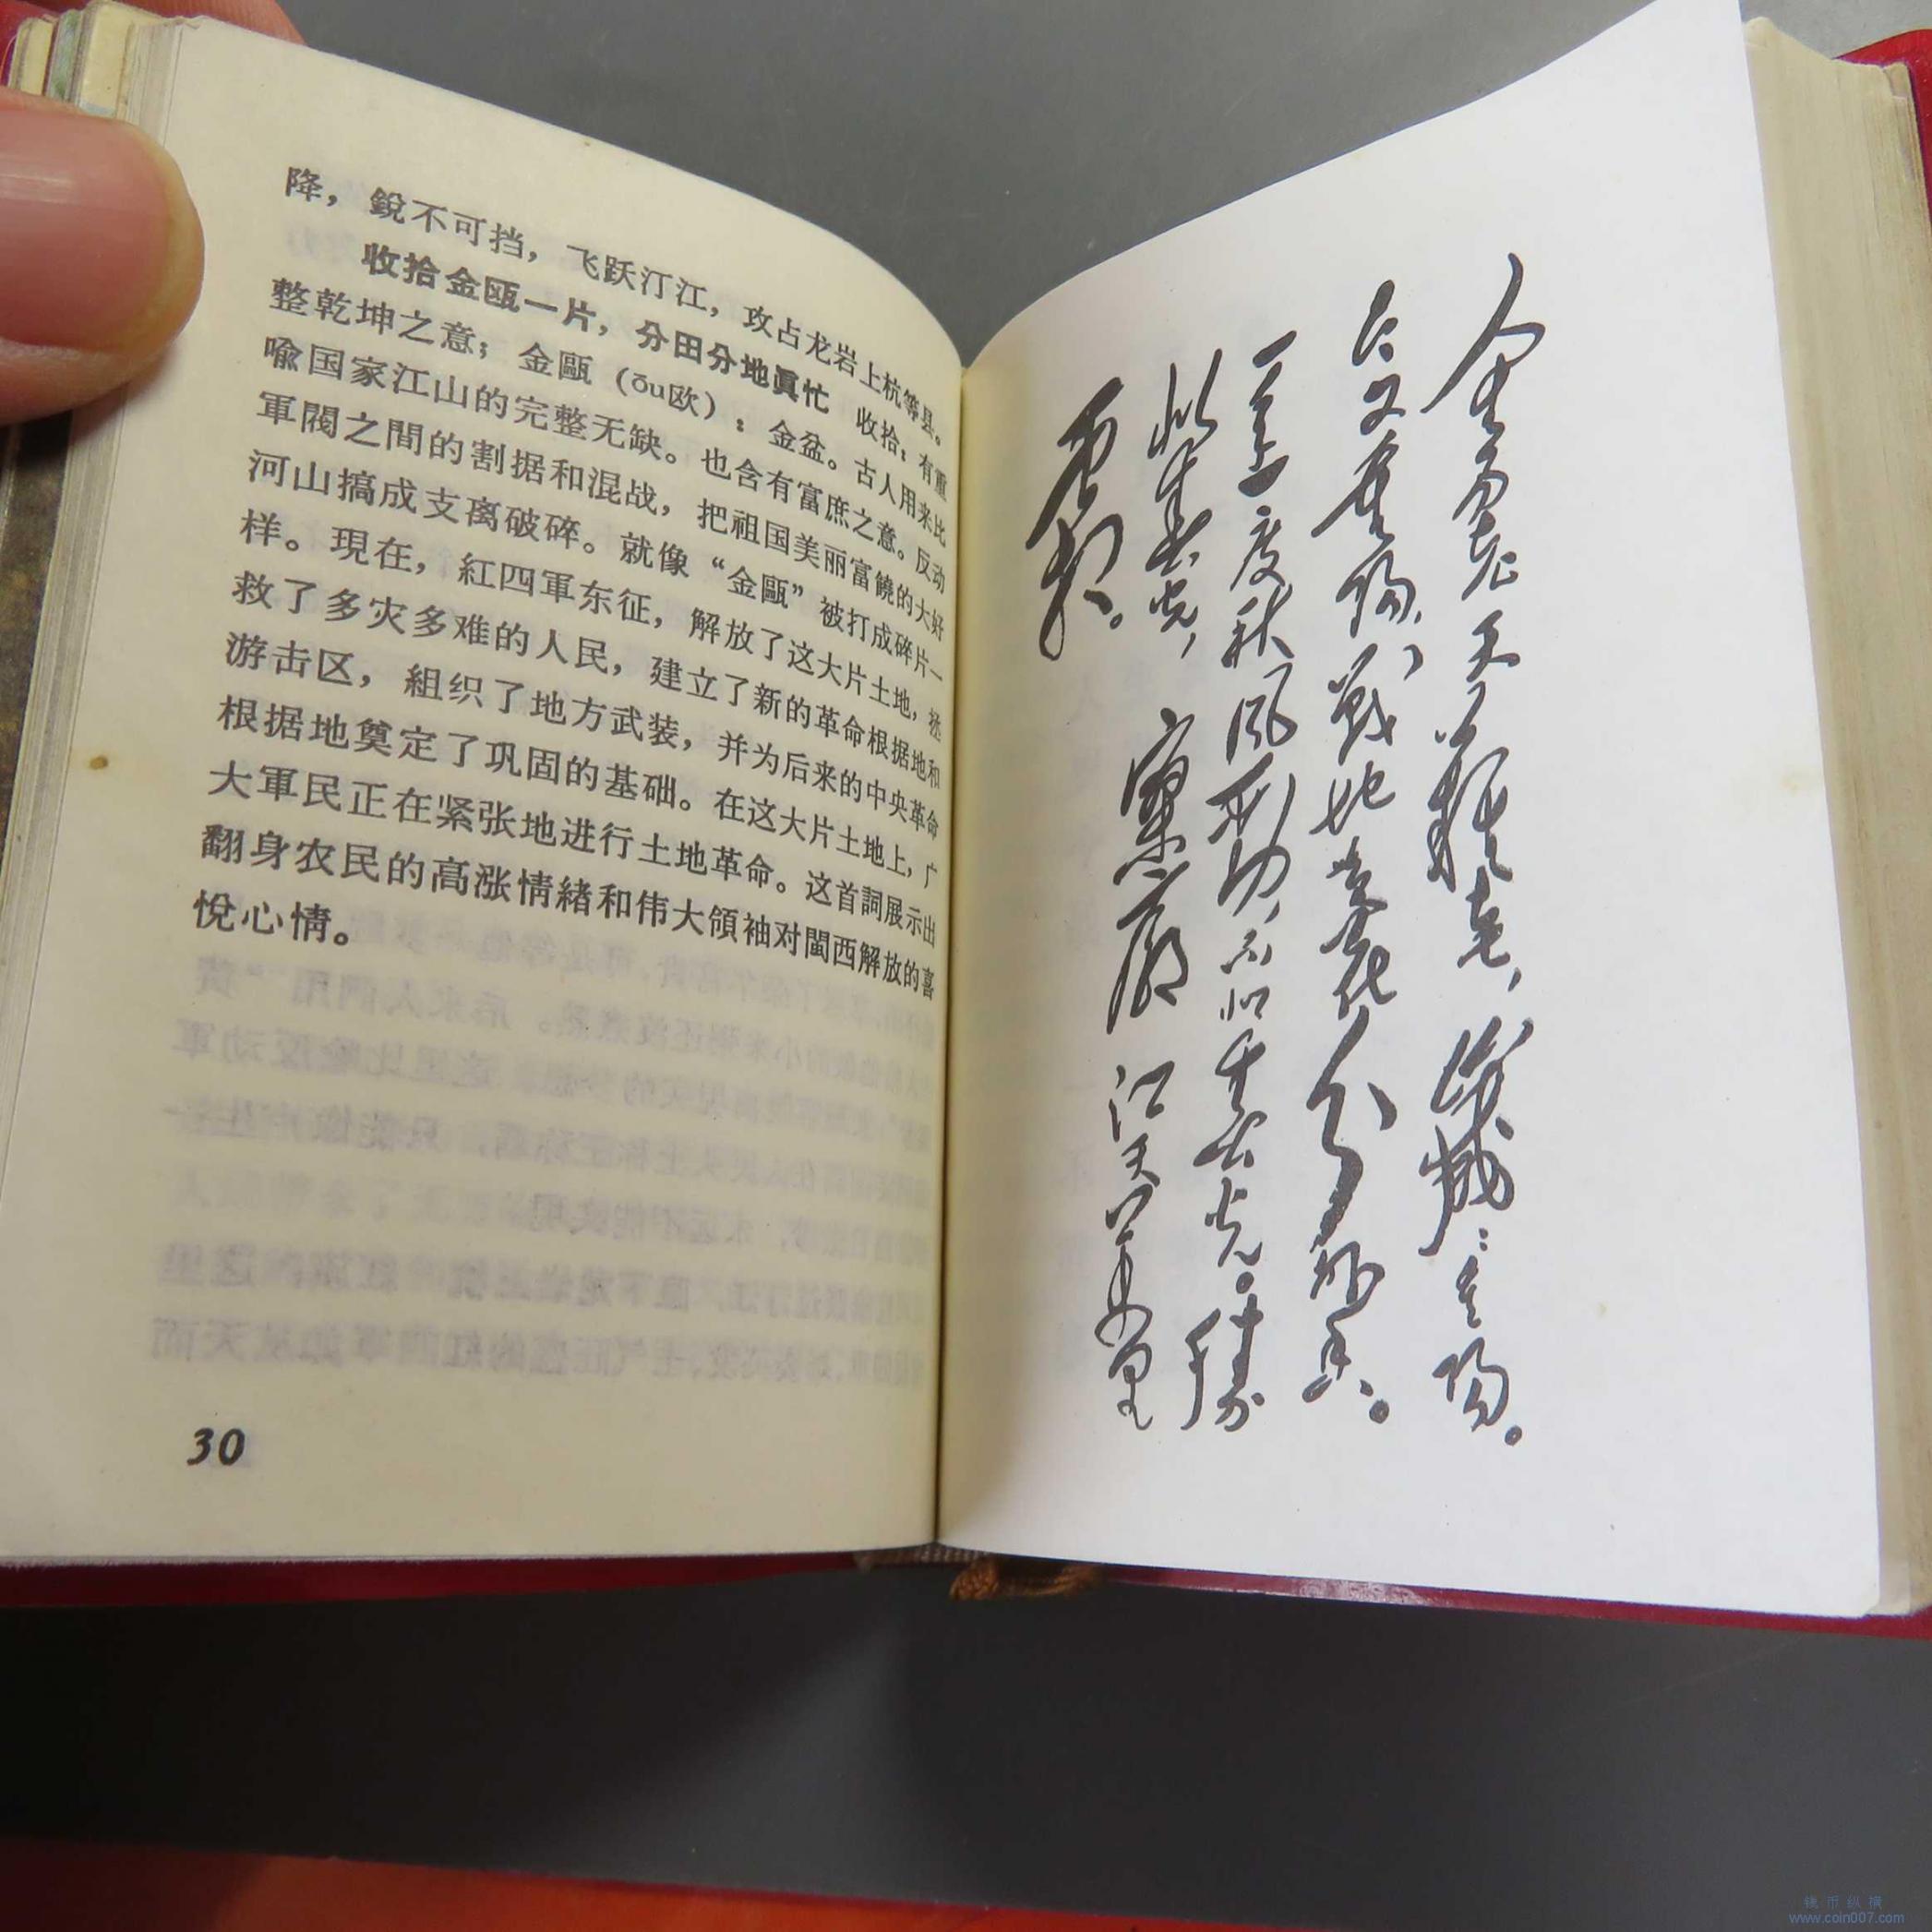 降，銳不可挡，飞跃汀江，攻占龙岩上杭等县。
收拾金瓯一片，分田分地眞忙　收拾：有重
整乾坤之意；金甌（ōu欧）：金盆。古人用来比
喻国家江山的完整无缺。也含有富庶之意。反动
軍閥之間的割据和混战，把祖国美丽富饒的大好
河山搞成支离破碎。就像“金甌”被打成碎片一
样。現在，紅四軍东征，解放了这大片土地，拯
救了多灾多难的人民，建立了新的革命根据地和
游击区，組织了地方武装，并为后来的中央革命
根据地奠定了巩固的基础。在这大片土地上，广
大軍民正在紧张地进行土地革命。这首詞展示出
翻身农民的高涨情緒和伟大領袖对閩西解放的喜
悅心情。
30
人生易老天難老，歲歲重陽。
今又重陽，戰地黃花分外香。
一年一度秋風勁，不似春光。勝
似春光，寥廓江天萬里
霜。
钱币纵横
www.coin007.com